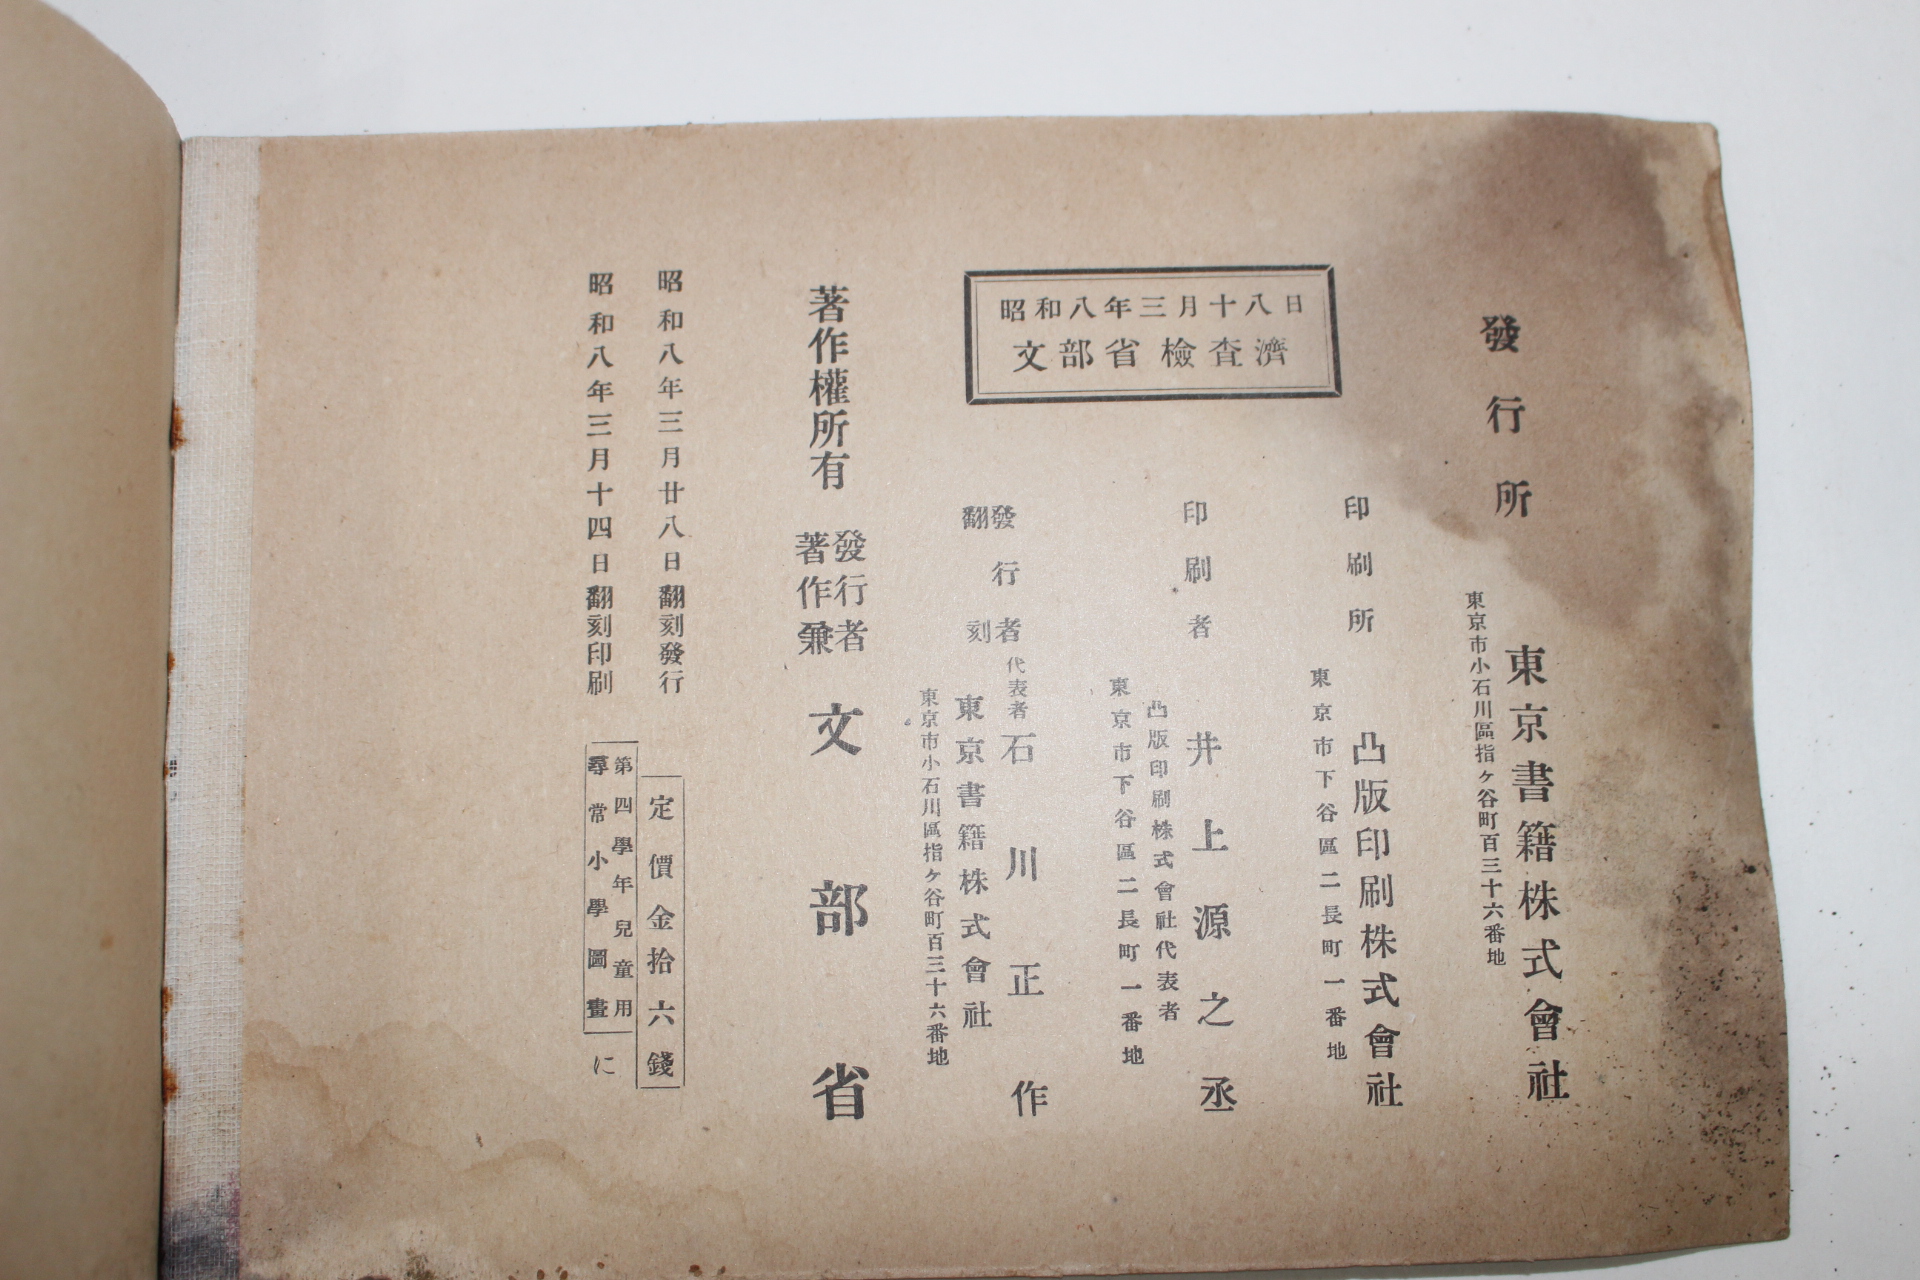 昭和八年三月十四日翻刻印刷
昭和八年三月廿八日翻刻發行
尋常小學圖畫
第四學年兒童用
に
定價金拾六錢
著作權所有
著作兼
發行者
文部省
昭和八年三月十八日
文部省檢査濟
翻刻
發行者
東京市小石川區指ヶ谷町百三十六番地
東京書籍株式會社
代表者石川正作
印刷者
東京市下谷區二長町一番地
凸版印刷株式會社代表者
井上源之丞
印刷所
東京市下谷區二長町一番地
凸版印刷株式會社
發行所
東京市小石川區指ヶ谷町百三十六番地
東京書籍株式會社